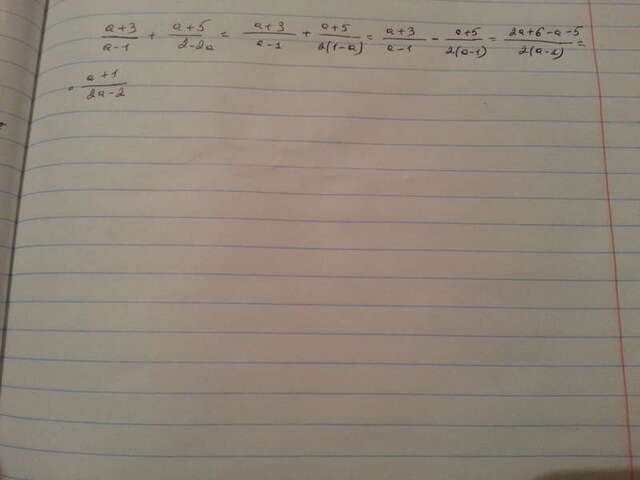 (a+3)/(a-1) + (a+5)/(2-2a) = (a+3)/(a-1) + (a+5)/(2(1-a)) = (a+3)/(a-1) - (a+5)/(2(a-1)) = (2a+6-a-5)/(2(a-1)) =
= (a+1)/(2a-2)